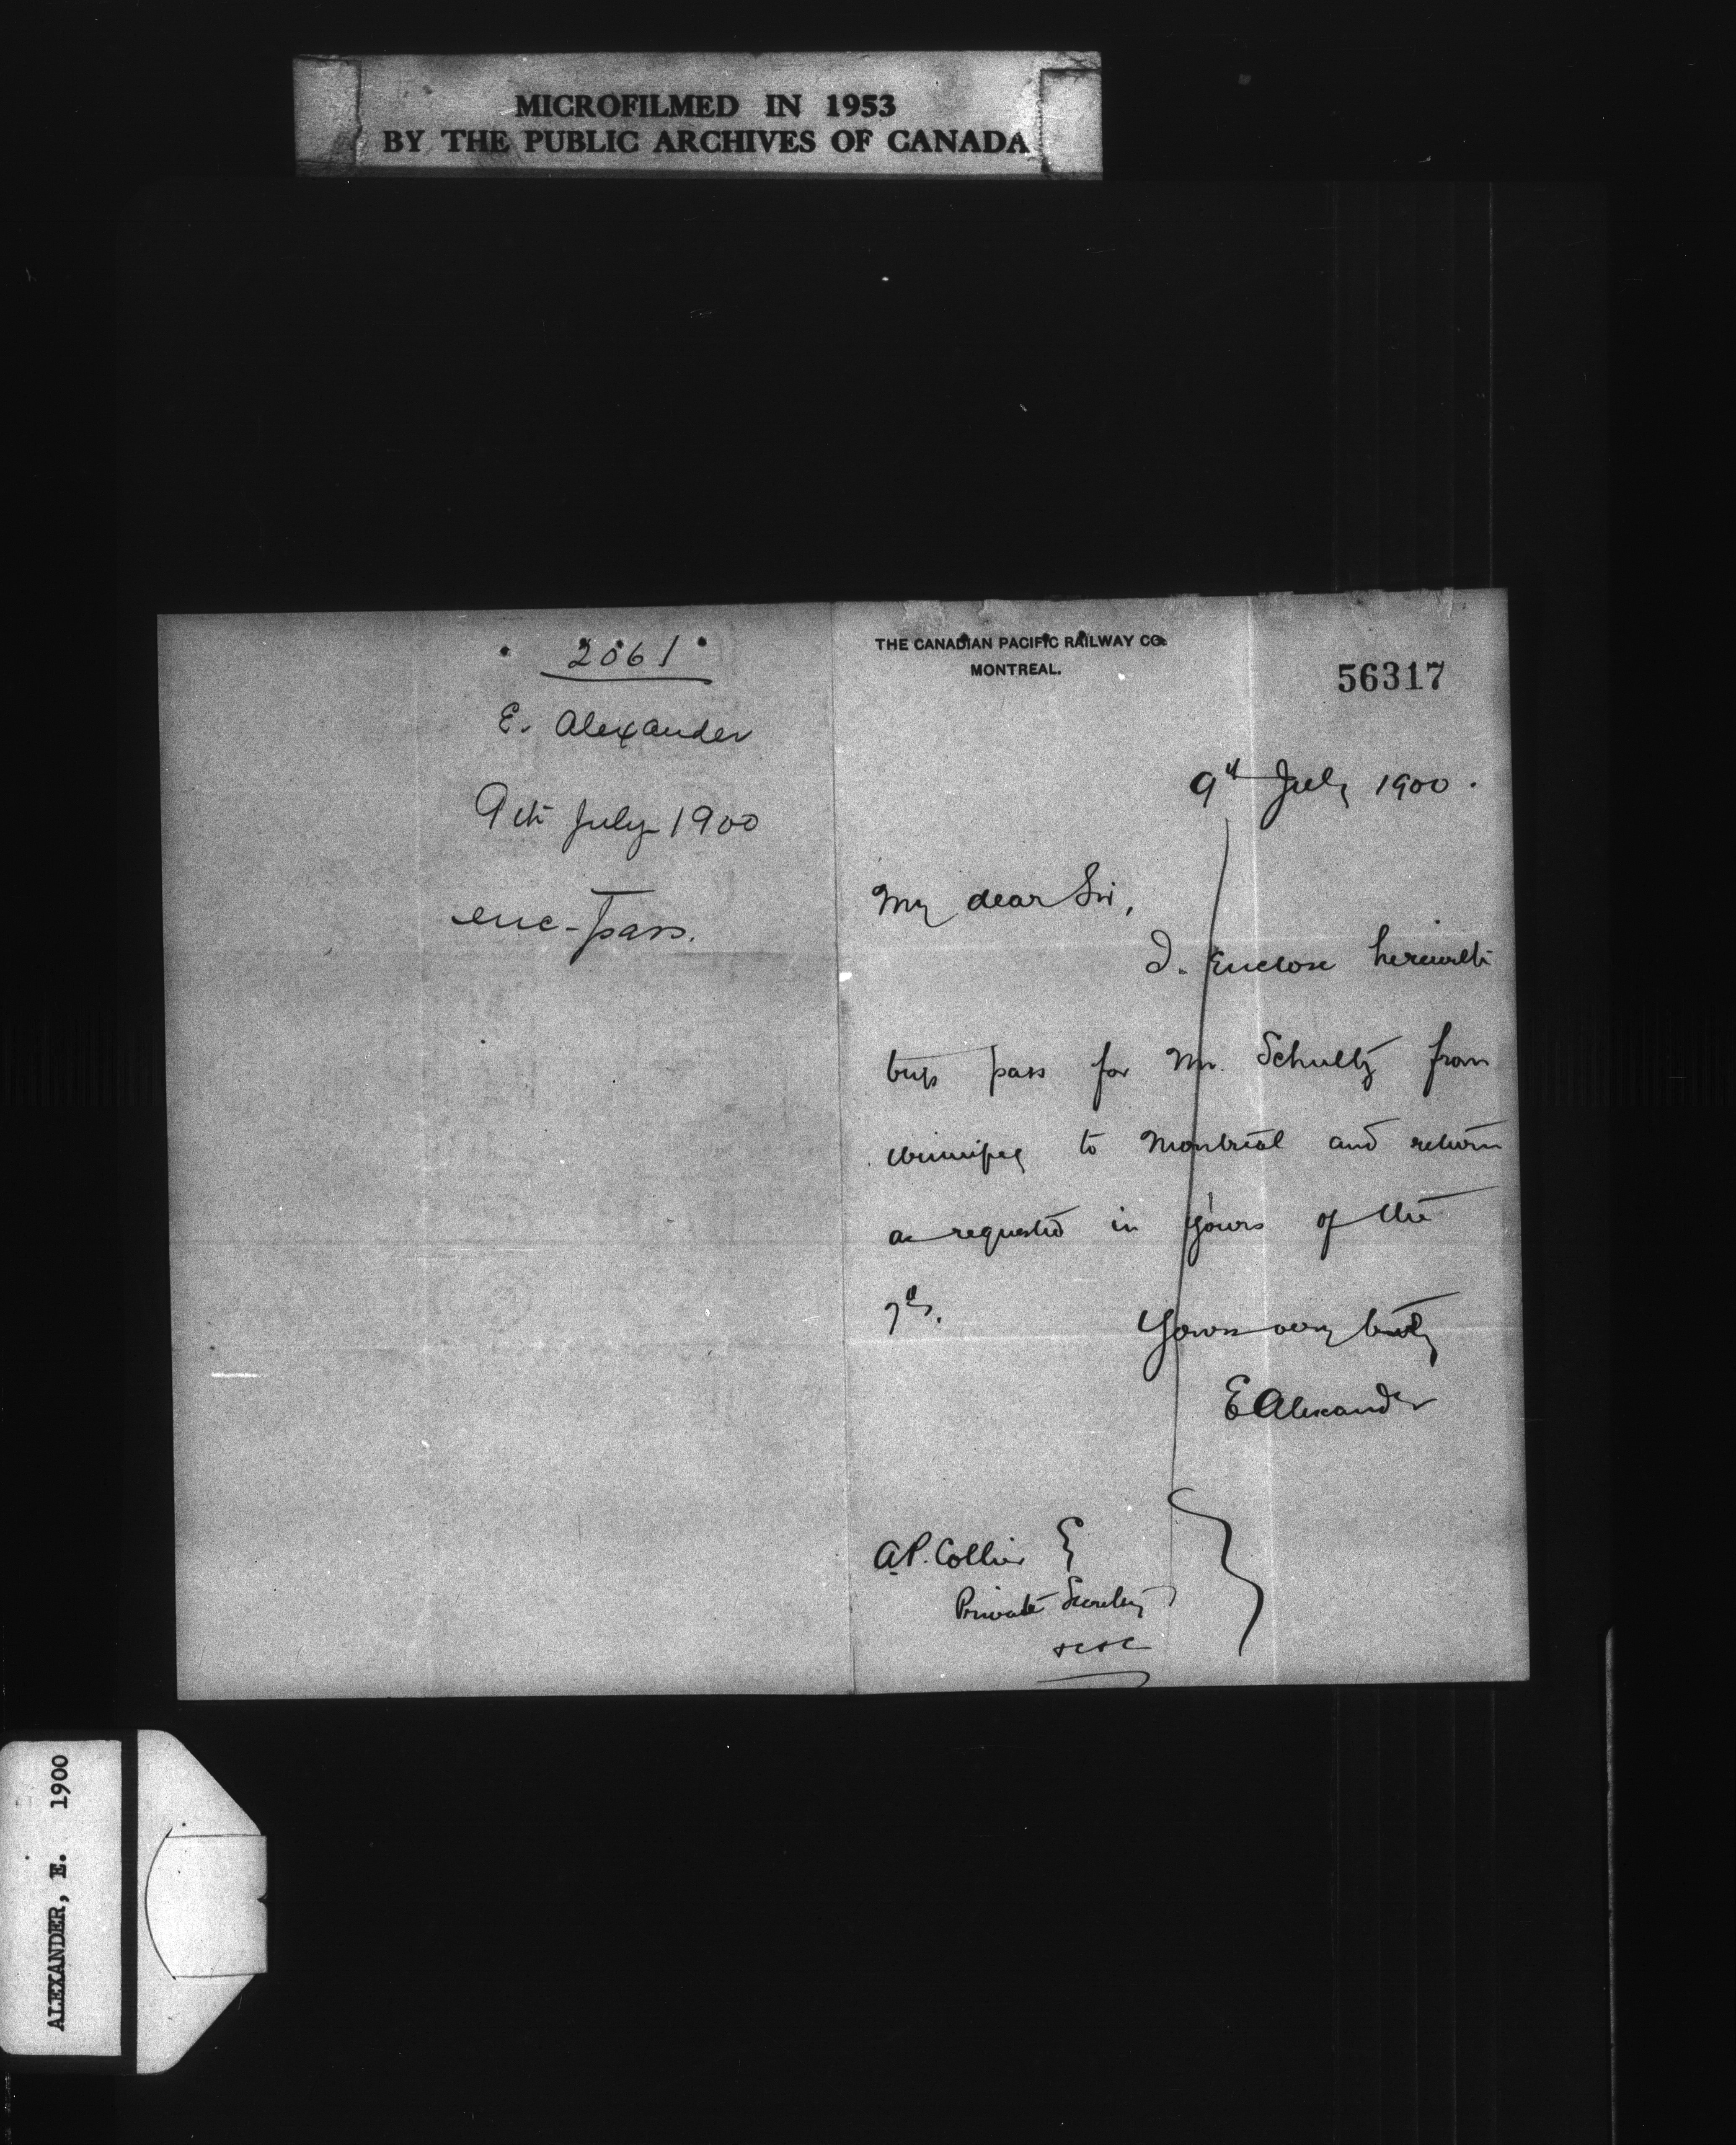 MICROFILMED IN 1953
BY THE PUBLIC ARCHIVES OF CANADA
2061
E. Alexander
9th July 1900
enc-pass.
THE CANADIAN PACIFIC RAILWAY CO.
MONTREAL.
56317
9th July 1900.
My dear Sir,
I enclose herewith
trip pass for Mr. Schultz from
Winnipeg to Montreal and return
as requested in yours of the
7th.
Yours very truly
E Alexander
A.P. Collier
Private Secretary
ALEXANDER, E. 1900